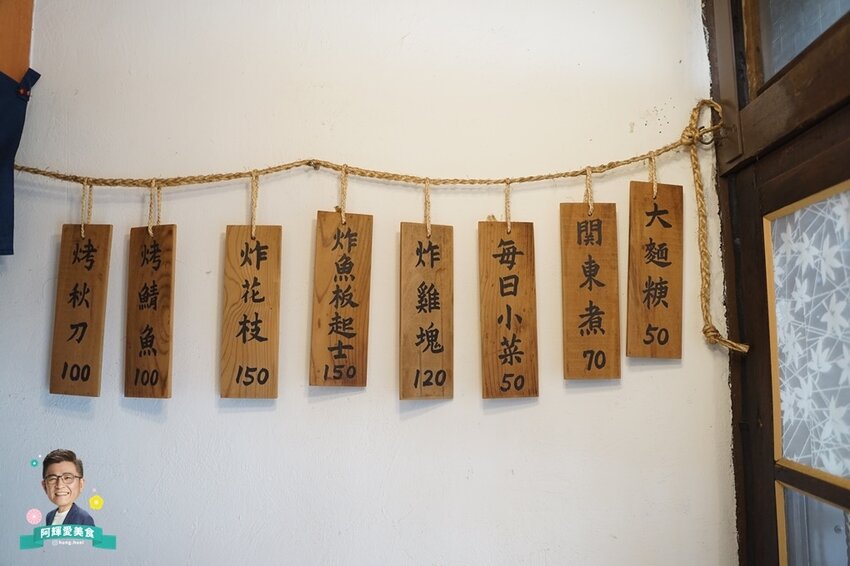 烤秋刀
100
烤鯖魚
100
炸花枝
150
炸魚板起士
150
炸雞塊
120
每日小菜
50
關東煮
70
大麵糖
50
阿輝愛美食